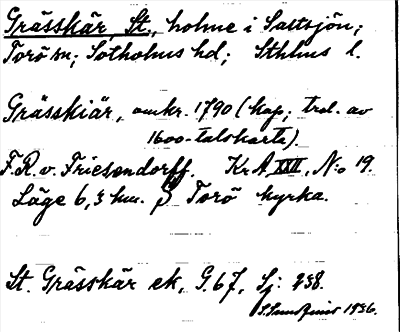 Grässkär, St., holme i Saltsjön;
Torö sn; Sotholms hd; Sthlms l.
Grässkiär, omkr. 1790 (kop; trol. av
1600-talskarta).
F.R. v. Friesendorff. Kr A, XXII, No 19.
Läge 6,3 km. S Torö kyrka.
St. Grässkär ek, G.67, Sj: 238.
1936.